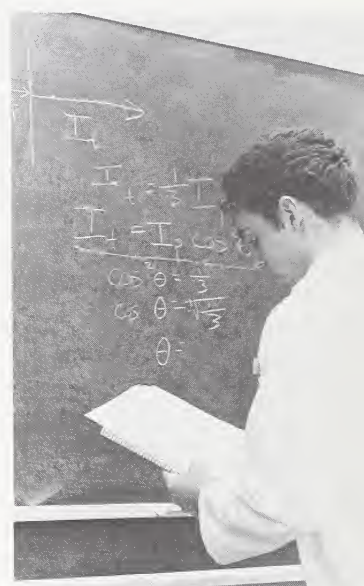 I
I_t = 1/3 I
I_t = I_p cos
cos² θ = 1/3
cos θ = √1/3
θ =